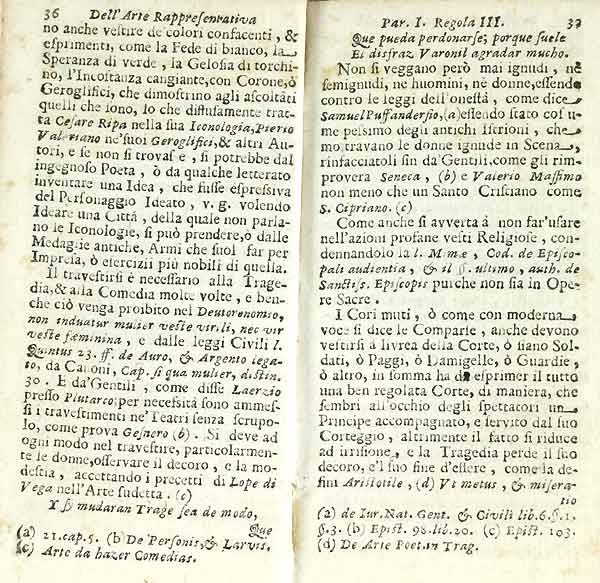 36 Dell'Arte Rappresentativa
no anche vestire de' colori confacenti, &
esprimenti, come la Fede di bianco, la
Speranza di verde, la Gelosia di torchi-
no, l'Incostanza cangiante, con Corone, ò
Geroglifici, che dimostrino agli ascoltãti
quelli che sono, lo che diffusamente trat-
ta Cesare Ripa nella sua Iconologia, Pietro
Valeriano ne' suoi Geroglifici, & altri Au-
tori, e se non si trovasse, si potrebbe dal
ingegnoso Poeta, ò da qualche letterato
inventare una Idea, che fusse espressiva
del Personaggio Ideato, v. g. volendo
Ideare una Città, della quale non parla-
no le Iconologie, si può prendere, ò dalle
Medaglie antiche, Armi che suol far per
Impresa, ò esercizii più nobili di quella.
Il travestirsi è necessario alla Trage-
dia, & alla Comedia molte volte, e ben-
che ciò venga proibito nel Deutoronomio,
non induatur mulier veste virili, nec vir
veste fæminina, e dalle leggi Civili l.
Quintus 23. ff. de Auro, & Argento lega-
to, da Canoni, Cap. si qua mulier, distin.
30. E da' Gentili, come disse Laerzio
presso Plutarco; per necessità sono ammes-
si i travestimenti ne' Teatri senza scrupo-
lo, come prova Gesnero (b). Si deve ad
ogni modo nel travestire, particolarmen-
te le donne, osservare il decoro, e la mo-
destia, accettando i precetti di Lope di
Vega nell'Arte sudetta. (c)
Y si mudaran Trage sea de modo,
Que
(a) 21. cap. 5. (b De Personis, & Larvis.
(c) Arte da hazer Comedias.
Par. I. Regola III. 37
Que pueda perdonarse; porque suele
El disfraz Varonil agradar mucho.
Non si veggano però mai ignudi, nè
semignudi, ne huomini, nè donne, essendo
contro le leggi dell'onestà, come dice
Samuel Puffandersio, (a) essendo stato cost u-
me pessimo degli antichi Istrioni, che
mostravano le donne ignude in Scena,
rinfacciatoli sin da' Gentili, come gli rim-
provera Seneca, (b) e Valerio Massimo
non meno che un Santo Cristiano come
S. Cipriano. (c)
Come anche si avvertà à non far' usare
nell'azioni profane vesti Religiose, con-
dennandolo la l. Mimæ, Cod. de Episco-
pali audientia, & il §. ultimo, auth. de
Sanctiss. Episcopis purche non sia in Ope-
re Sacre.
I Cori muti, ò come con moderna
voce si dice le Comparse, anche devono
vestirsi à livrea della Corte, ò siano Sol-
dati, ò Paggi, ò Damigelle, ò Guardie,
ò altro, in somma ha da esprimer il tutto
una ben regolata Corte, di maniera, che
sembri all'occhio degli spettatori un
Principe accompagnato, e servito dal suo
Corteggio, altrimente il fatto si riduce
ad irrisione, e la Tragedia perde il suo
decoro, e'l suo fine d'essere, come la de-
fini Aristotile, (d) Vt metus, & misera-
tio
(a) de Iur. Nat. Gent. & Civili lib. 6. §. 1.
§. 3. (b) Epist. 98. lib. 20. (c) Epist. 103.
(d) De Arte Poet. in Trag.